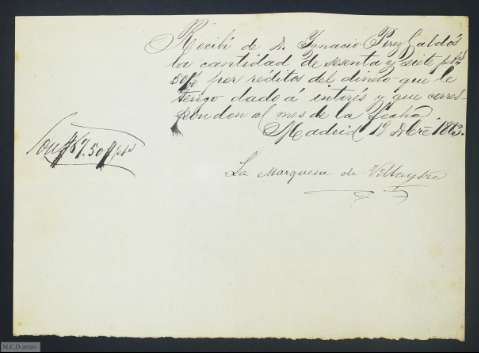 Recibí de D. Ignacio Perez Galdós
la cantidad de sesenta y siete ptas
50 cs por réditos del dinero que le
tengo dado á interés y que corres-
ponden al mes de la fecha
Madrid 12 Dbre
Son 67.50 ptas
La Marquesa de